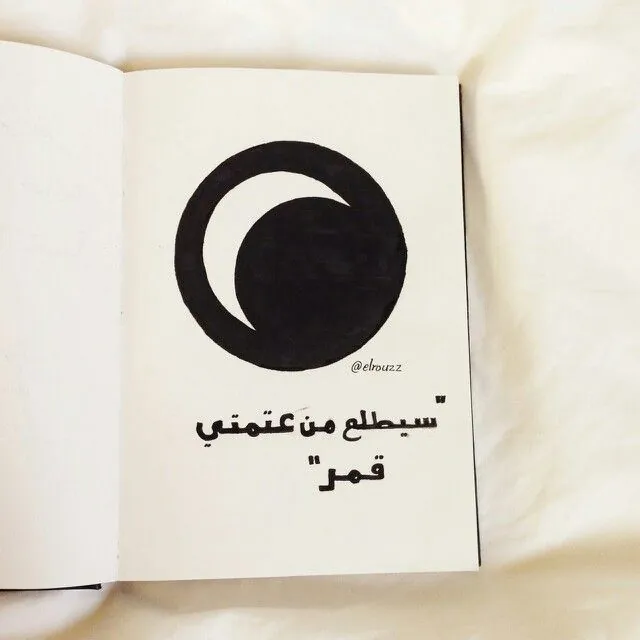 @elrouzz
"سيطلع من عتمتي
قمر"